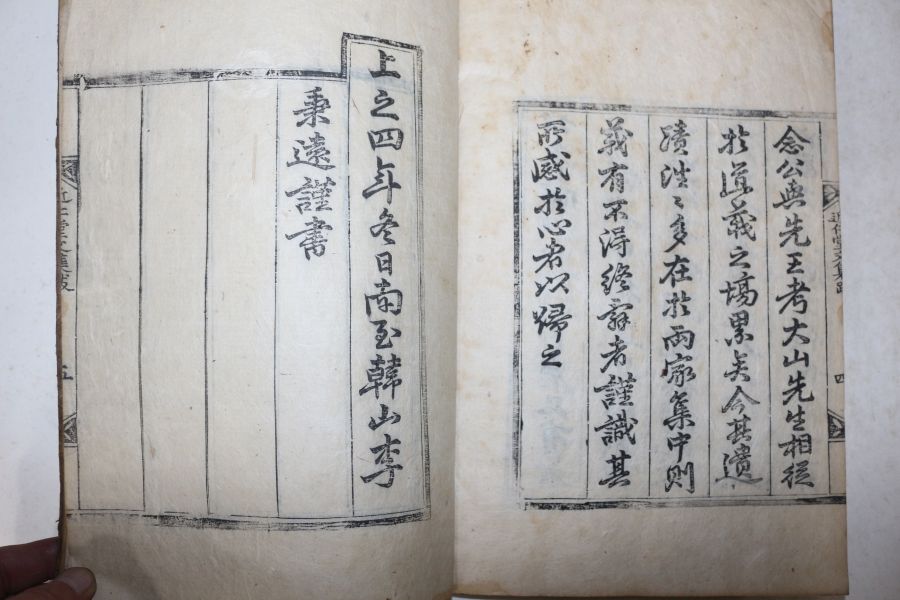 念公與先王考大山先生相從
於道義之場累矣今其遺
蹟徃〻多在於兩家集中則
義有不淂終辭者謹識其
所感於心者以歸之
四
上之四年冬日南至韓山李
秉遠謹書
五